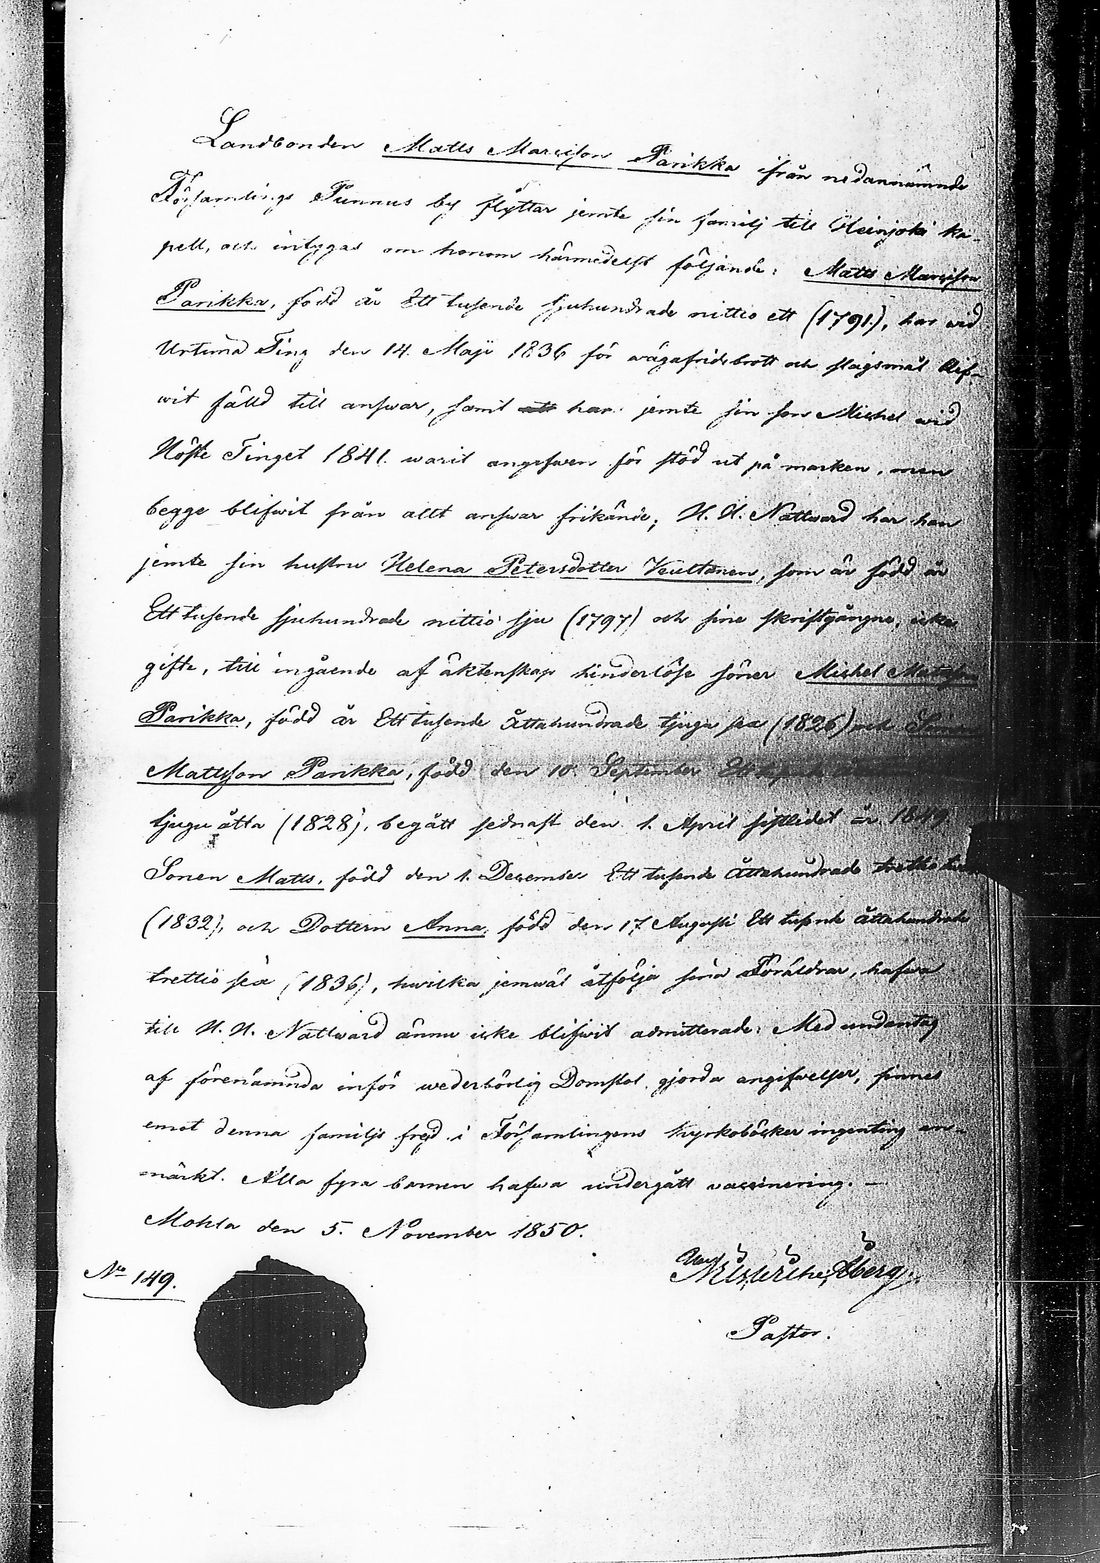 Landbonden Matts Marcisson Parikka ifrån nedannämnde
Församlings Punnus by flyttar jemte sin familj till Heinjoki ka-
pell, och intygas om honom härmedelst följande: Matts Marcisson
Parikka, född år Ett tusende sjuhundrade nittio ett (1791), har wid
Urtima Ting den 14. Maji 1836 för wägafridsbrott och slagsmål blif-
wit fälld till answar, samt har jemte sin son Michel wid
Höste Tinget 1841. warit angifwen för stöld ut på marken, men
begge blifwit från allt answar frikände; H. H. Nattward har han
jemte sin hustru Helena Petersdotter Veuttanen, som är född år
Ett tusende sjuhundrade nittio sju (1797) och sine skriftgångne, icke
gifte, till ingående af äktenskap hinderlöse söner Michel Mattsson
Parikka, född år Ett tusende Åttahundrade tjugu sex (1826) och
Mattsson Parikka, född den 10. September Ett tusende
tjugu åtta (1828), begått sednast den 1. April sistlidet år 1849.
Sonen Matts, född den 1. December Ett tusende Åttahundrade trettio
(1832), och Dottern Anna, född den 17 Augusti Ett tusende åttahundrade
trettio sex (1836), hwilka jemwäl åtfölja sina Föräldrar, hafwa
till H. H. Nattward ännu icke blifwit admitterade. Med undantag
af förenämnda inför wederbörlig Domstol gjorda angifwelser, finnes
emot denna familjs frejd i Församlingens Kyrkoböcker ingenting an-
märkt. Alla fyra barnen hafwa undergått vaccinering. —
Mohla den 5. November 1850.
No 149.
Åberg.
Pastor.